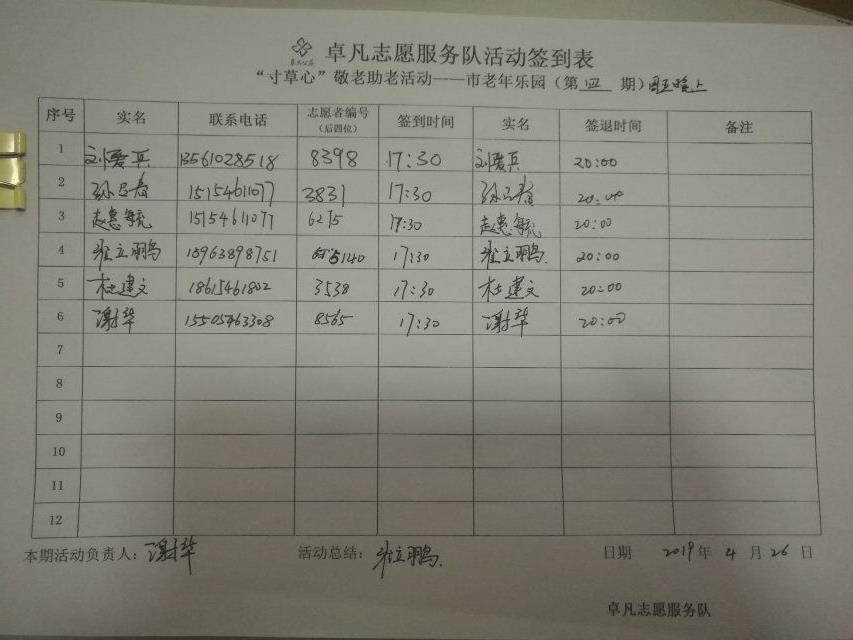 卓凡志愿服务队活动签到表
“寸草心”敬老助老活动——市老年乐园（第四期）周五晚上
序号 实名 联系电话 志愿者编号（后四位） 签到时间 实名 签退时间 备注
1 刘爱兵 13561028518 8398 17:30 刘爱兵 20:00
2 15154611077 3831 17:30 20:00
3 赵惠敏 15154611077 6275 17:30 赵惠敏 20:00
4 崔立鹏 15963898751 5140 17:30 崔立鹏. 20:00
5 杜建文 18615461802 3538 17:30 杜建文 20:00
6 谢华 15505463308 8565 17:30 谢华 20:00
7
8
9
10
11
12
本期活动负责人：谢华 活动总结：崔立鹏. 日期 2019年 4 月 26 日
卓凡志愿服务队